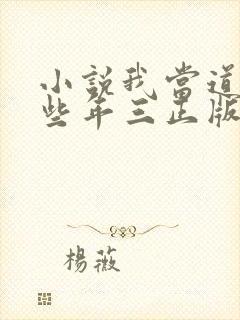 小說我當道
些年三正版
楊薇